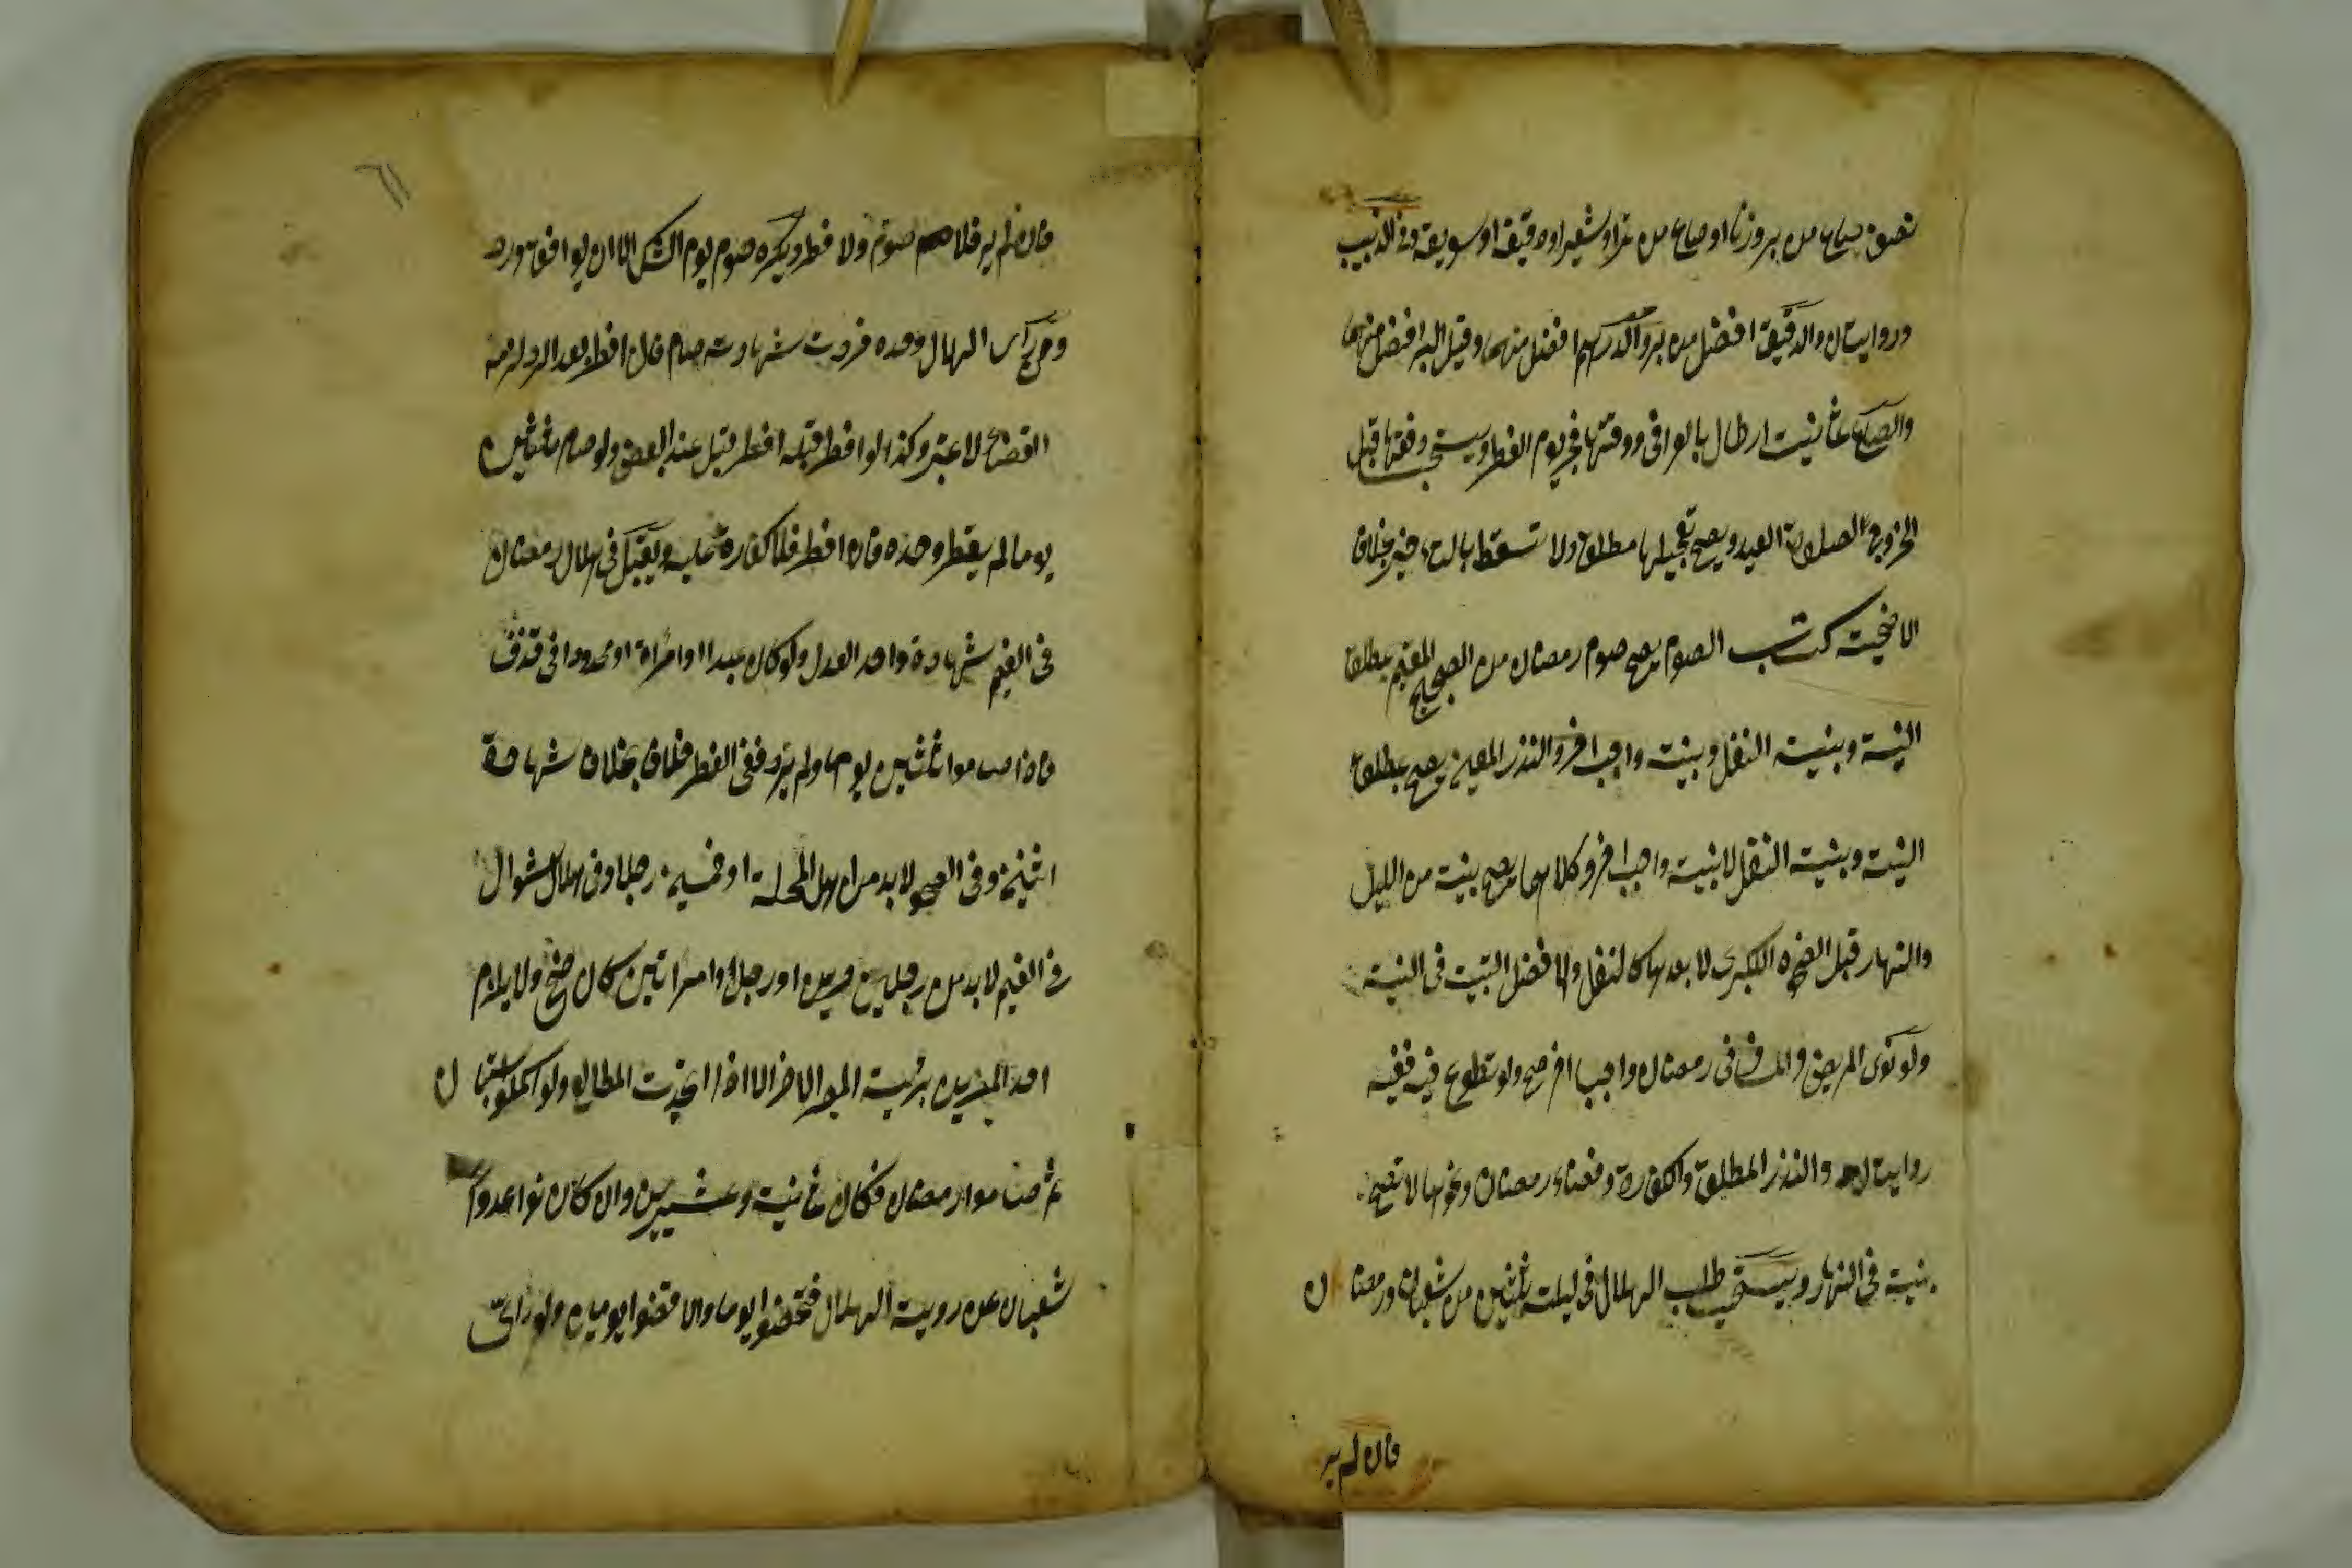 نصف صاع من بر وزنا او صاع من تمر او شعير او دقيقه او سويقه وفى الزبيب
وروايتان والدقيق افضل من بر والدراهم افضل منهما وقيل البر افضل منهما
والصاع ثمانية ارطال بالعراقى ووقتها فجر يوم الفطر ويستحب دفعها قبل
الخروج الصلوة العيد ويصح تعجيلها مطلقا ولا تسقط بالتاخير بخلاف
الاضحية كتاب الصوم يصح صوم رمضان من الصحيح المقيم بمطلق
النية وبنية النفل وبنية واجب اخر والنذر المعين يصح بمطلق
النية وبنية النفل لا بنية واجب اخر وكلاهما يصح بنية من الليل
والنهار قبل الضحوة الكبرى لا بعدها كالنفل والافضل التبييت فى النية
ولو نوى المريض والمسافر فى رمضان واجبا اخر صح ولو تطوع فيه ففيه
روايتان والنذر المطلق والكفارة وقضاء رمضان ونحوها لا تصح
بنية فى النهار ويستحب طلب الهلال فى ليلة ثلثين من شعبان ورمضان
فان لم ير
فان لم ير فلا صوم ولا فطر ويكره صوم يوم الشك الا ان يوافق ورده
ومن راى الهلال وحده فردت شهادته صام فان افطر بعد الرد لزمه
القضاء لا غير وكذا لو افطر قبله افطر قبل عند البعض ولو صام ثلثين
يوما لم يفطر وحده فان افطر فلا كفارة عليه ويقبل فى هلال رمضان
فى الغيم شهادة واحد العدل ولو كان عبدا او امراة او محدودا فى قذف
فاذا صاموا ثلثين يوما ولم ير ففى الفطر خلاف بخلاف شهادة
اثنين وفى الصحو لا بد من اهل المحلة او خمسين رجلا وفى هلال شوال
فى الغيم لا بد من رجلين حرين او رجل وامراتين كان ضحى ولا يلزم
احد المصرين برؤية المصر الاخر الا اذا اتحدت المطالع ولو اكملوا شعبان
ثم صاموا رمضان فكان ثمانية وعشرين وان كان نوا عدوا
شعبان عن روية الهلال قضوا يوما والا قضوا يومين ولو راى